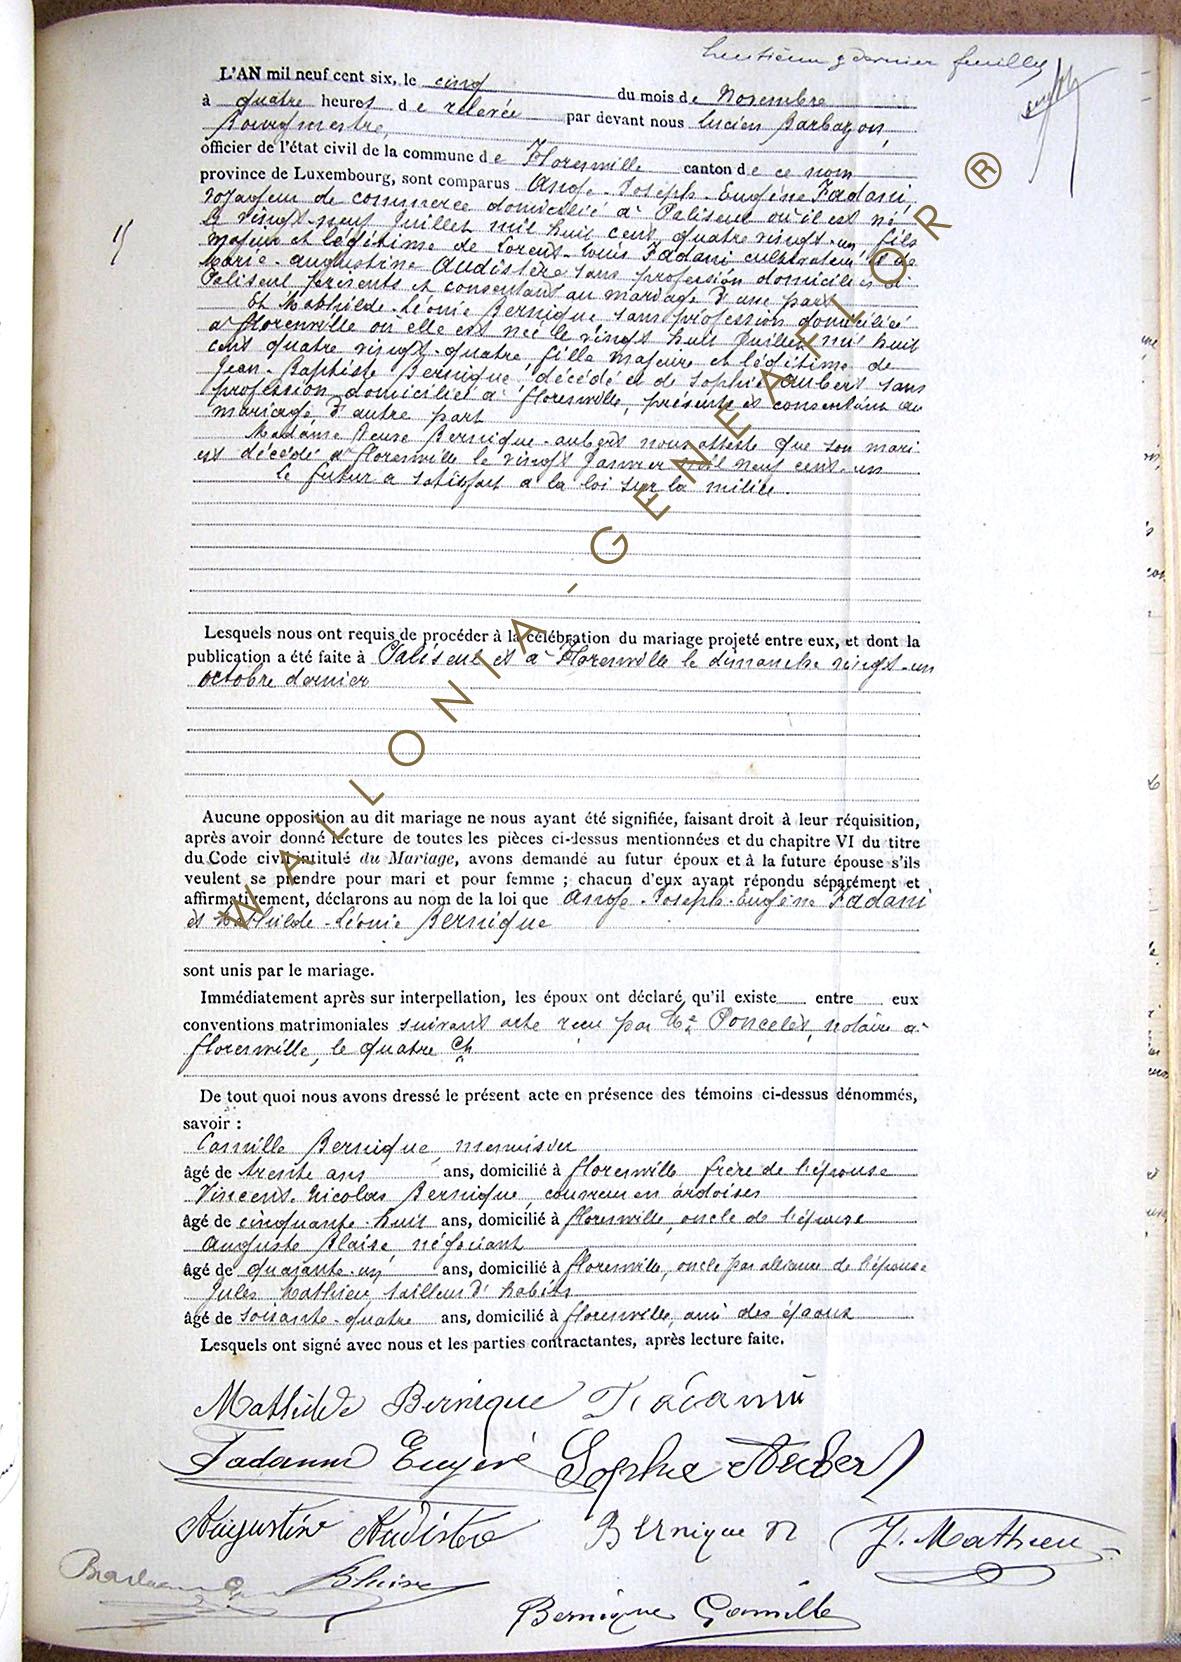 huitième & dernier feuillet
L'AN mil neuf cent six, le cinq du mois de Novembre
à quatre heures de relevée par devant nous Lucien Barbazon,
Bourgmestre,
officier de l'état civil de la commune de Florenville canton de ce nom
province de Luxembourg, sont comparus Ange-Joseph-Eugène Fadani,
voyageur de commerce domicilié à Paliseul où il est né
le vingt-neuf Juillet mil huit cent quatre vingt-un fils
majeur et légitime de Lorent-Louis Fadani cultivateur et de
Marie-Augustine Audistère sans profession domiciliés à
Paliseul présents et consentant au mariage d'une part
Et Mathilde-Léonie Bernique sans profession domiciliée
à Florenville où elle est née le vingt huit Juillet mil huit
cent quatre vingt-quatre fille majeure et légitime de
Jean-Baptiste Bernique, décédé et de Sophie Aubert sans
profession domiciliée à Florenville, présente et consentant au
mariage d'autre part
Madame Veuve Bernique-Aubert nous atteste que son mari
est décédé à Florenville le vingt Janvier mil neuf cent-un
Le futur a satisfait à la loi sur la milice.
Lesquels nous ont requis de procéder à la célébration du mariage projeté entre eux, et dont la
publication a été faite à Paliseul et à Florenville le dimanche vingt-un
octobre dernier
Aucune opposition au dit mariage ne nous ayant été signifiée, faisant droit à leur réquisition,
après avoir donné lecture de toutes les pièces ci-dessus mentionnées et du chapitre VI du titre
du Code civil intitulé du Mariage, avons demandé au futur époux et à la future épouse s'ils
veulent se prendre pour mari et pour femme ; chacun d'eux ayant répondu séparément et
affirmativement, déclarons au nom de la loi que Ange-Joseph-Eugène Fadani
et Mathilde-Léonie Bernique
sont unis par le mariage.
Immédiatement après sur interpellation, les époux ont déclaré qu'il existe entre eux
conventions matrimoniales suivant acte reçu par Me Poncelet, notaire à
Florenville, le quatre ct
De tout quoi nous avons dressé le présent acte en présence des témoins ci-dessus dénommés,
savoir :
Camille Bernique, menuisier
âgé de trente ans ans, domicilié à Florenville frère de l'épouse
Vincent-Nicolas Bernique, couvreur en ardoises
âgé de cinquante-huit ans, domicilié à Florenville, oncle de l'épouse
Auguste Blaise, négociant
âgé de quarante-un ans, domicilié à Florenville, oncle par alliance de l'épouse
Jules Mathieu tailleur d'habits
âgé de soixante-quatre ans, domicilié à Florenville, ami des époux
Lesquels ont signé avec nous et les parties contractantes, après lecture faite.
Mathilde Bernique Fadanni
Fadanni Eugène Sophie Aubert
Augustine Audistère Bernique N J. Mathieu
Blaise
Bernique Camille
WALLONIA-GENEAFLOR ®